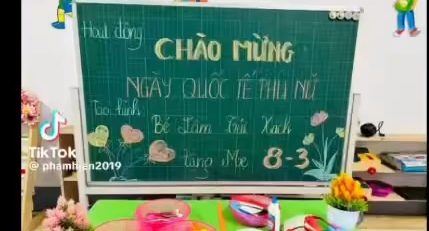 Hoạt động
CHÀO MỪNG
NGÀY QUỐC TẾ PHỤ NỮ
Tạo hình
Bé Làm Túi Xách
tặng Mẹ 8-3
TikTok
@ phamhien2019